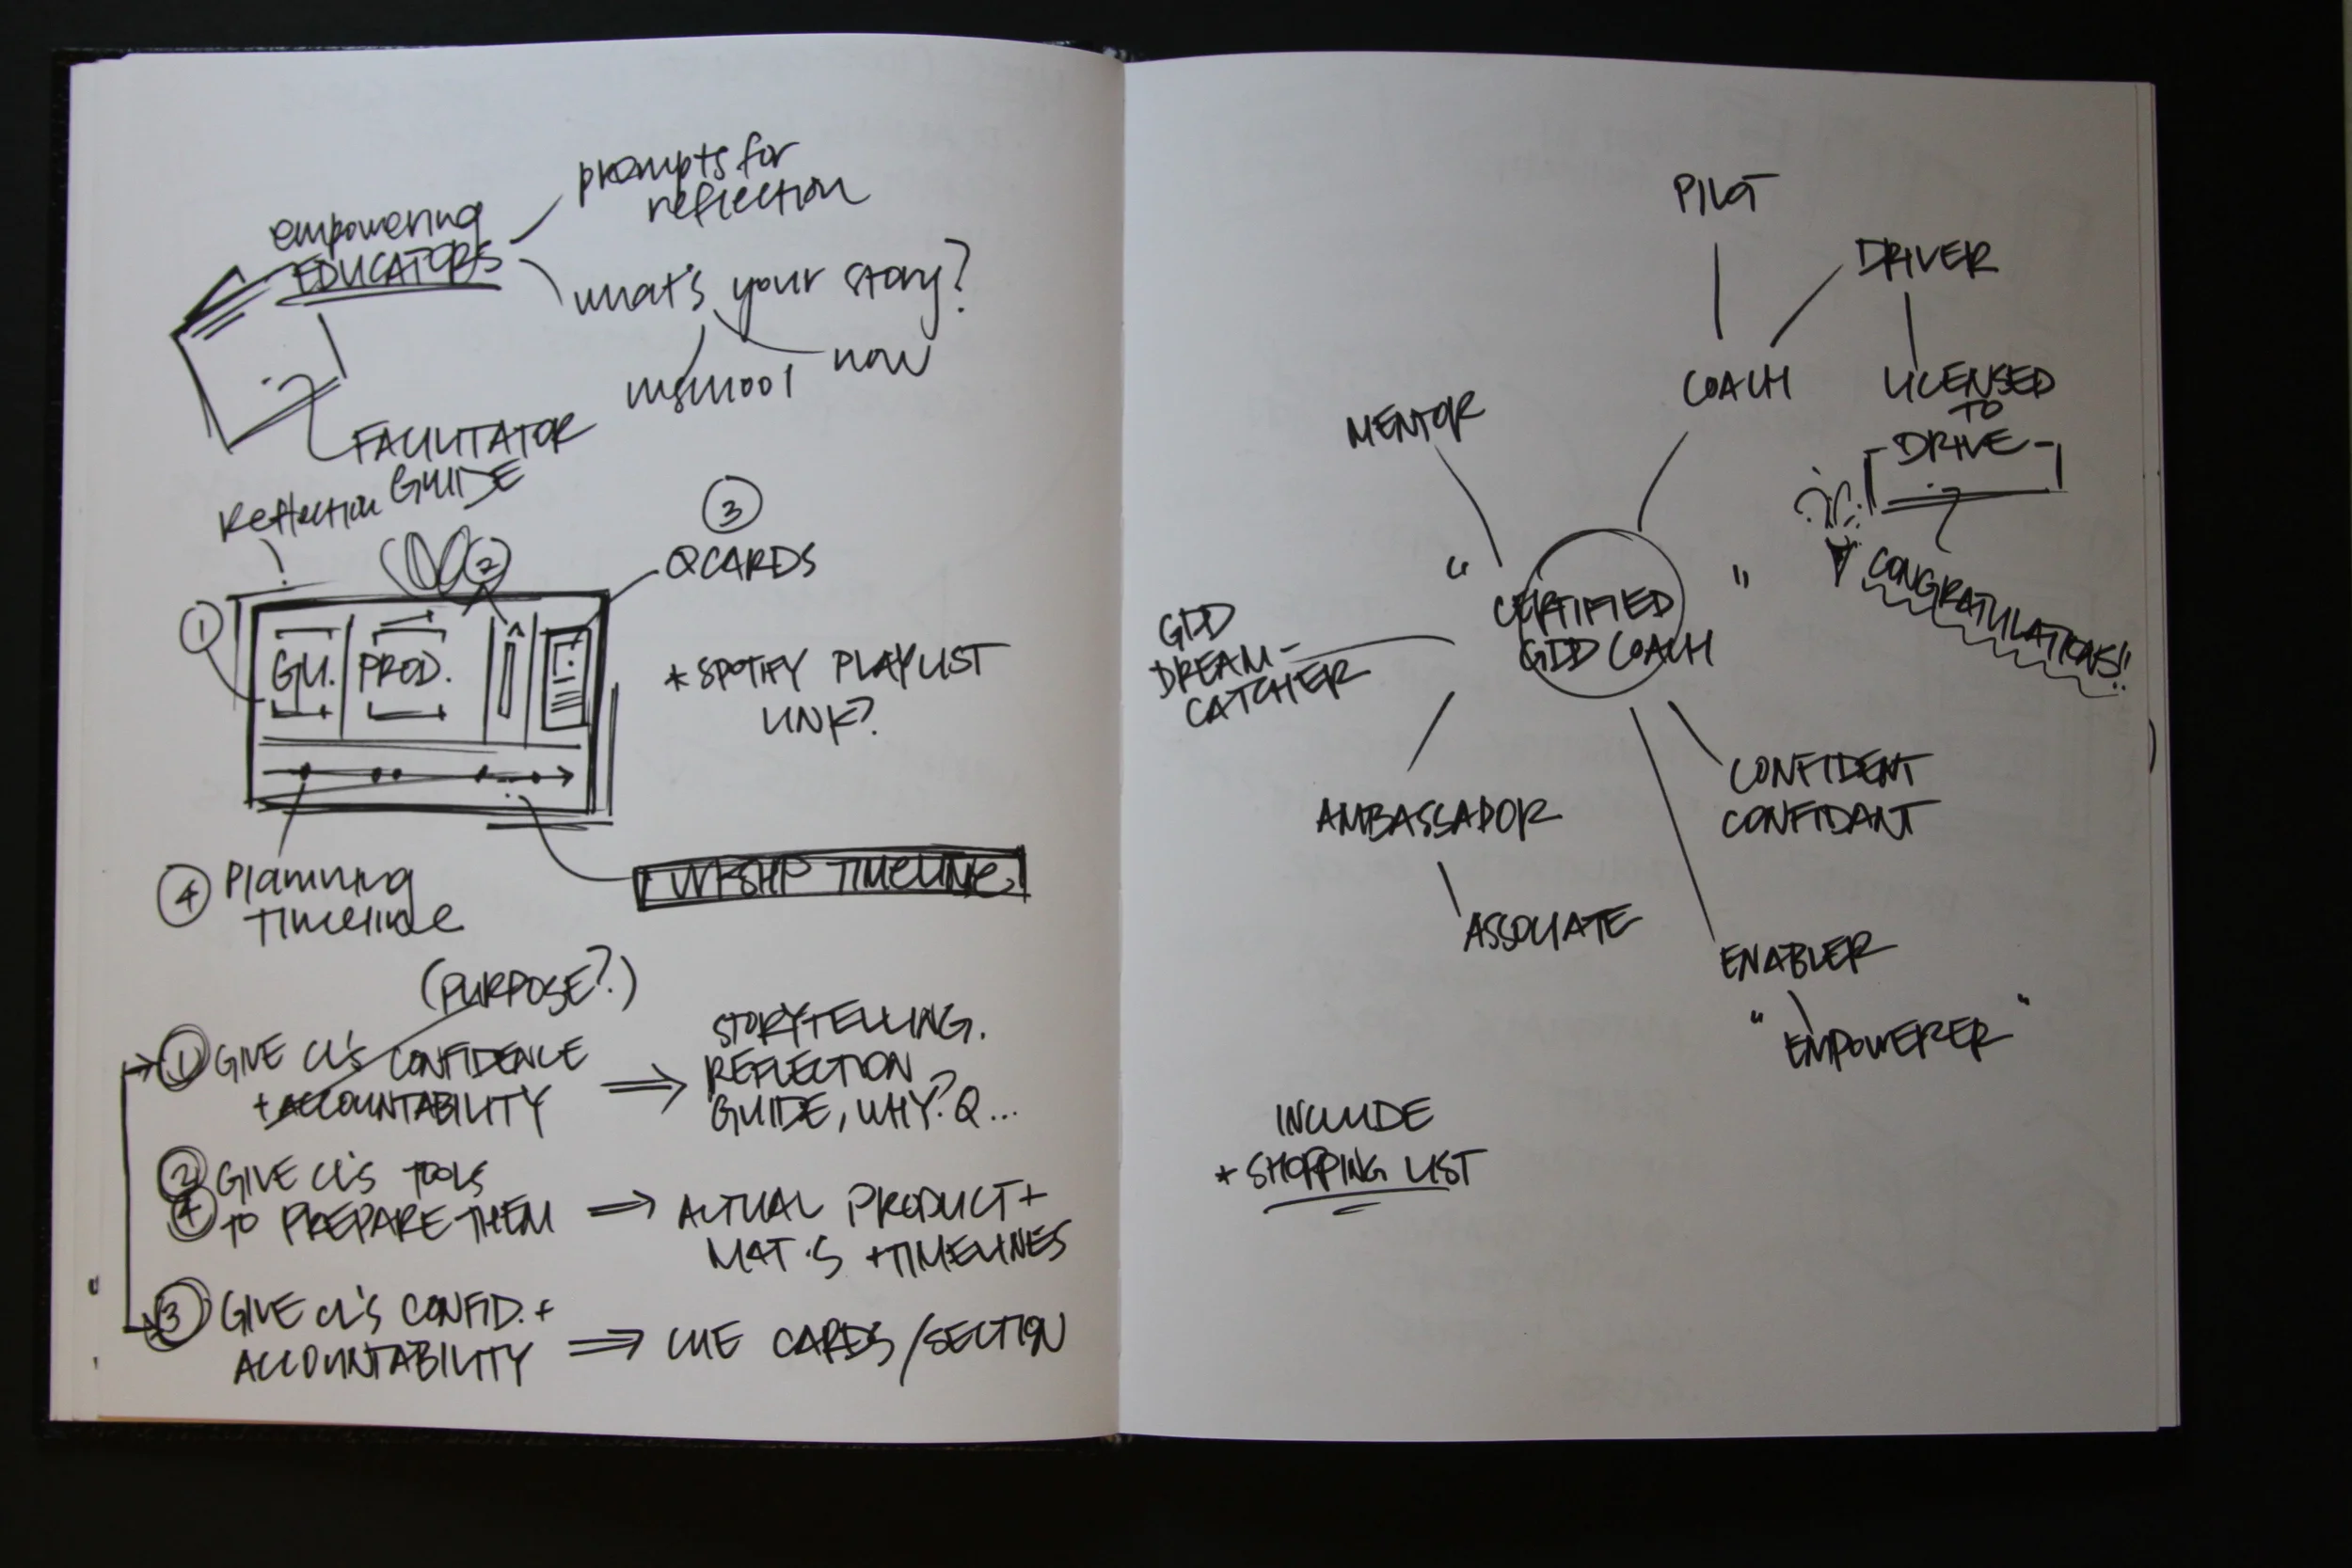 prompts for
reflection
empowering
EDUCATORS
what's your story?
now
FACILITATOR
GUIDE
Reflection
3
2
QCARDS
1
GU. PROD.
* SPOTIFY PLAYLIST
LINK?
WKSHP TIMELINE
4 Planning
TIMELINE
(PURPOSE?)
1 GIVE CL'S CONFIDENCE
+ ACCOUNTABILITY
STORYTELLING.
REFLECTION
GUIDE, WHY? Q...
2 GIVE CL'S TOOLS
4 TO PREPARE THEM
ACTUAL PRODUCT +
MAT'S + TIMELINES
3 GIVE CL'S CONFID. +
ACCOUNTABILITY
CUE CARDS / SECTION
PILOT
DRIVER
COACH
LICENSED
TO
DRIVE
MENTOR
CONGRATULATIONS!!
" CERTIFIED "
GDD COACH
GDD
DREAM-
CATCHER
CONFIDENT
CONFIDANT
AMBASSADOR
ASSOCIATE
ENABLER
"EMPOWERER"
INCLUDE
* SHOPPING LIST